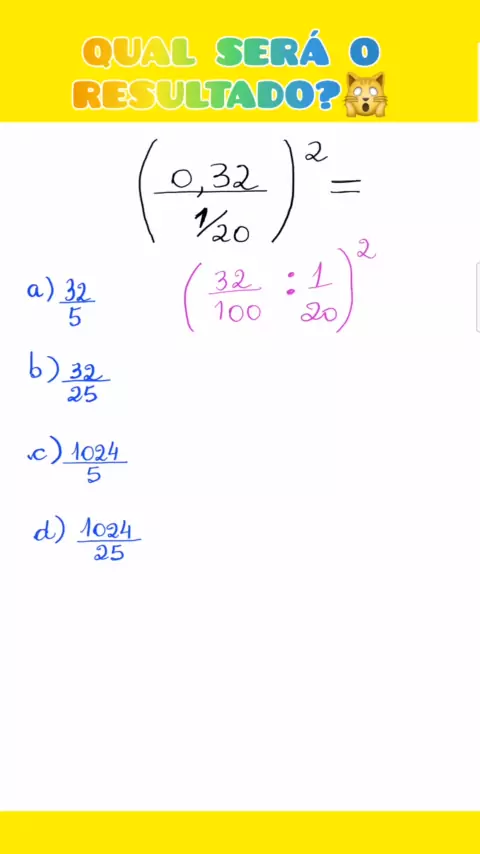 QUAL SERÁ O
RESULTADO?
(0,32 / 1/20)² =
(32/100 : 1/20)²
a) 32/5
b) 32/25
c) 1024/5
d) 1024/25